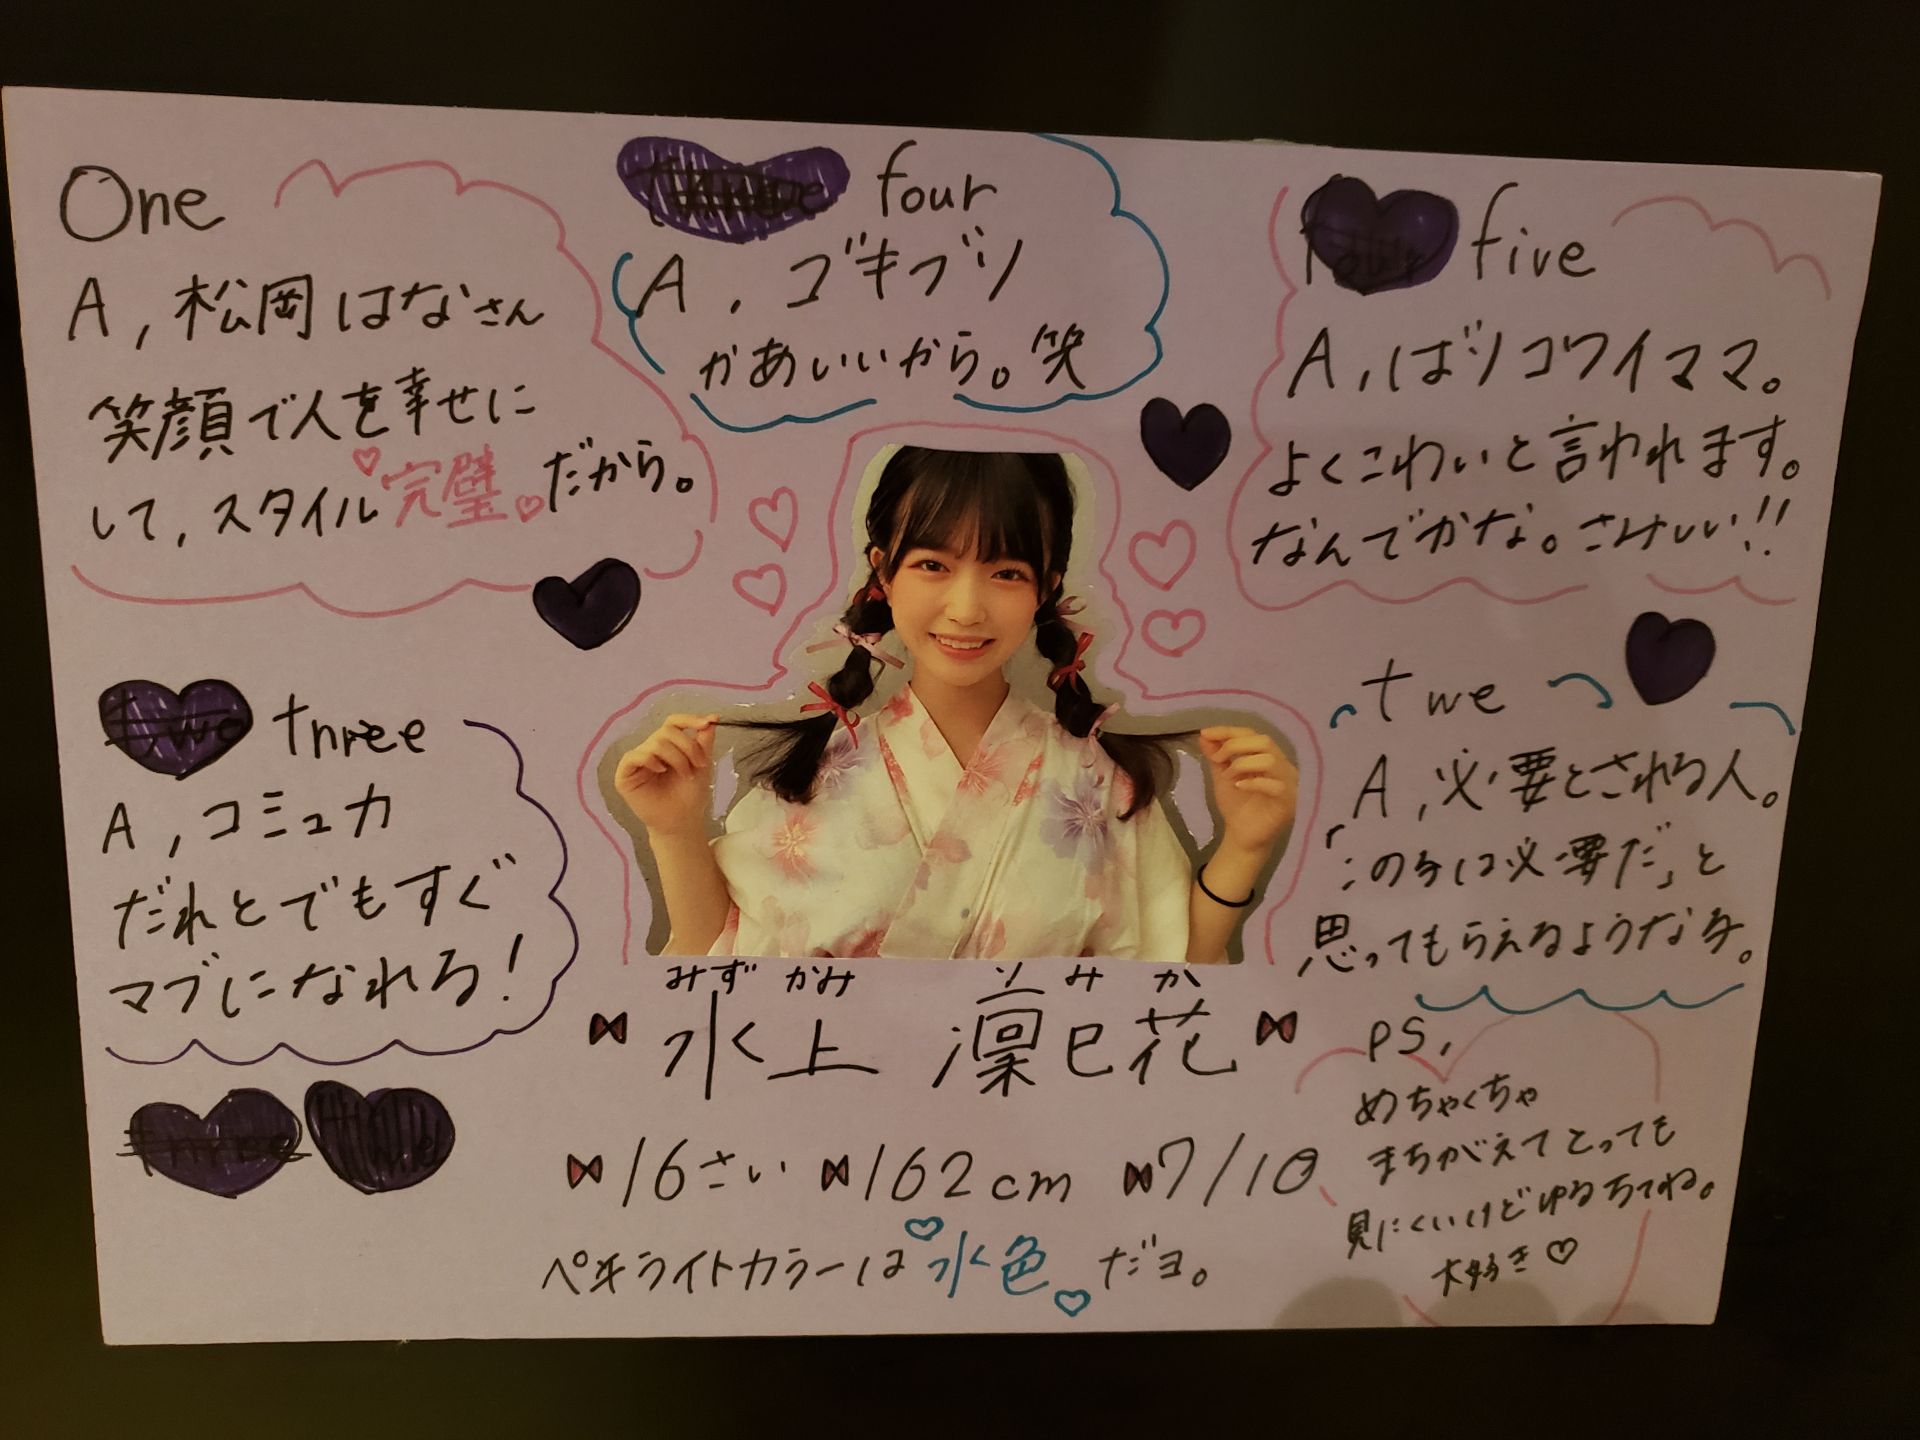 One
A, 松岡はなさん
笑顔で人を幸せに
して, スタイル完璧だから。
four
A, ゴキブリ
かあいいから。笑
five
A, ばりコワイママ。
よくこわいと言われます。
なんでかな。さみしい!!
three
A, コミュ力
だれとでもすぐ
マブになれる!
twe
A, 必要とされる人。
「この子は必要だ」と
思ってもらえるような子。
みず かみ り み か
水上 凜巳花
16さい 162cm 7/10
ペンライトカラーは水色だヨ。
PS,
めちゃくちゃ
まちがえてとっても
見にくいけどゆるちてね。
大好き♡